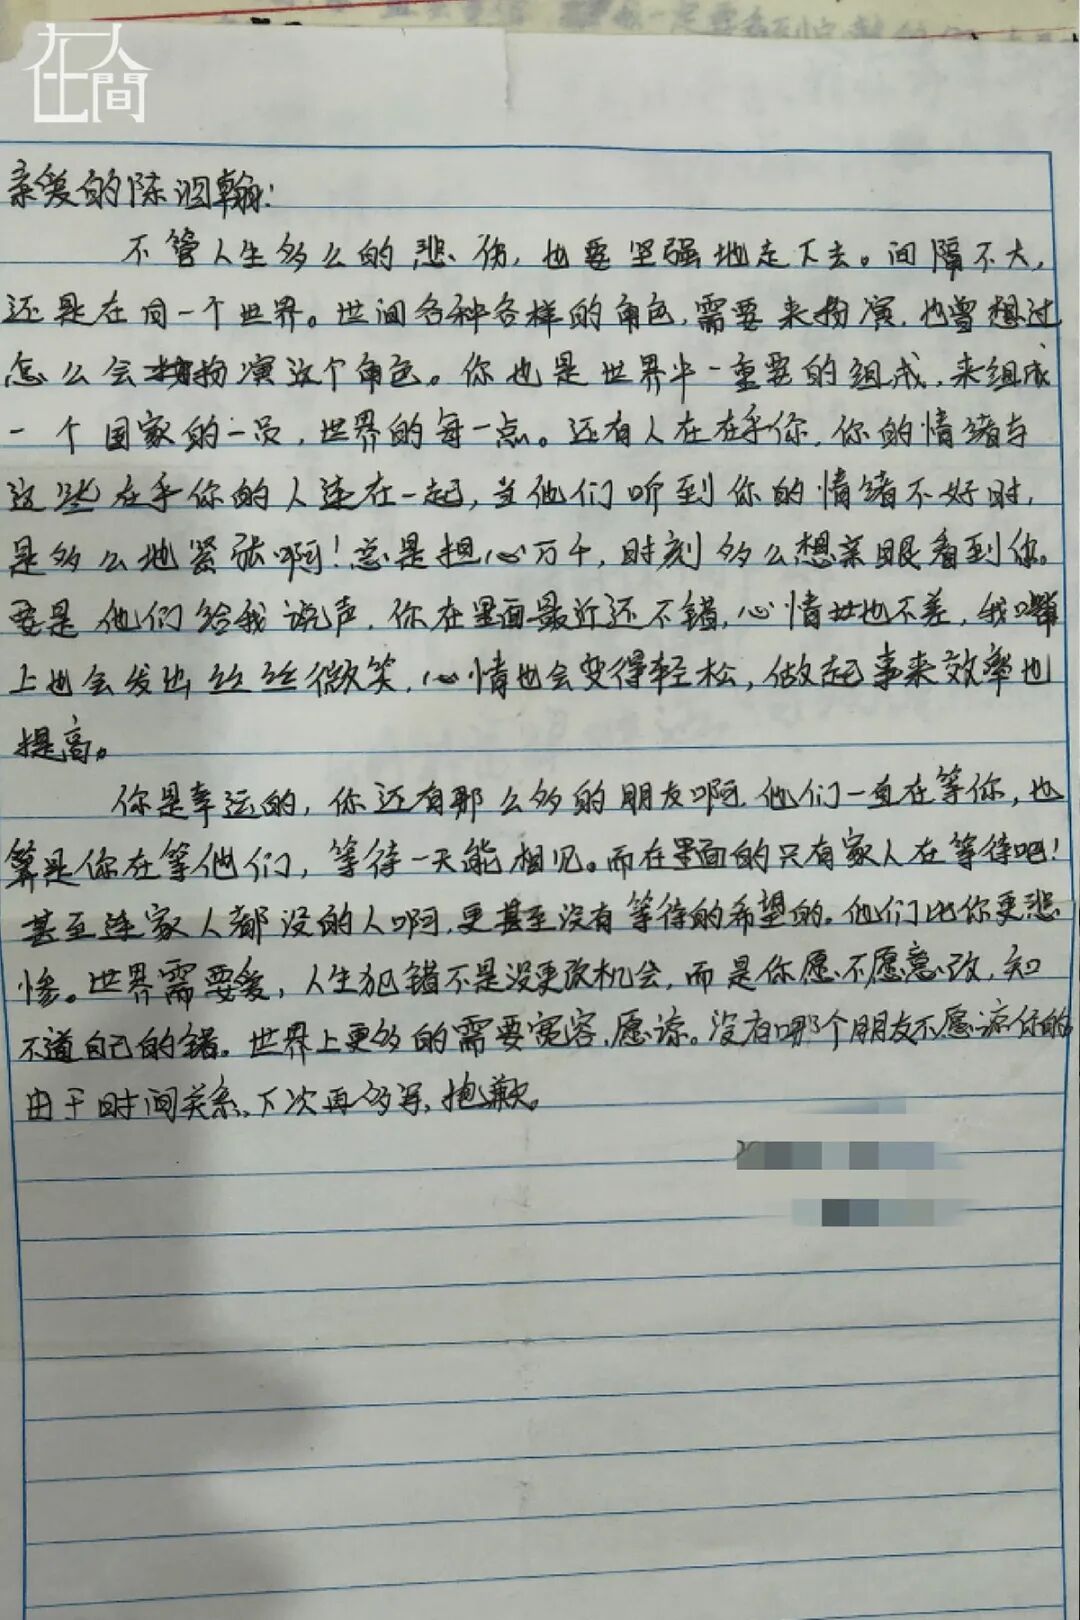 在人間
亲爱的陈泗翰:
不管人生多么的悲伤,也要坚强地走下去。间隔不大,
还是在同一个世界。世间各种各样的角色,需要来扮演,也曾想过
怎么会扮演这个角色。你也是世界中一重要的组成,来组成
一个国家的一员,世界的每一点。还有人在在乎你,你的情绪与
这些在乎你的人连在一起,当他们听到你的情绪不好时,
是多么地紧张啊!总是担心万千,时刻多么想亲眼看到你。
要是他们给我说声,你在里面最近还不错,心情也不差,我嘴
上也会发出丝丝微笑,心情也会变得轻松,做起事来效率也
提高。
你是幸运的,你还有那么多的朋友啊,他们一直在等你,也
算是你在等他们,等待一天能相见。而在里面的只有家人在等待吧!
甚至连家人都没的人啊,更甚至没有等待的希望的。他们比你更悲
惨。世界需要爱,人生犯错不是没更改机会,而是你愿不愿意改,知
不道自己的错。世界上更多的需要宽容,愿谅。没有哪个朋友不愿谅你的
由于时间关系,下次再多写,抱歉。